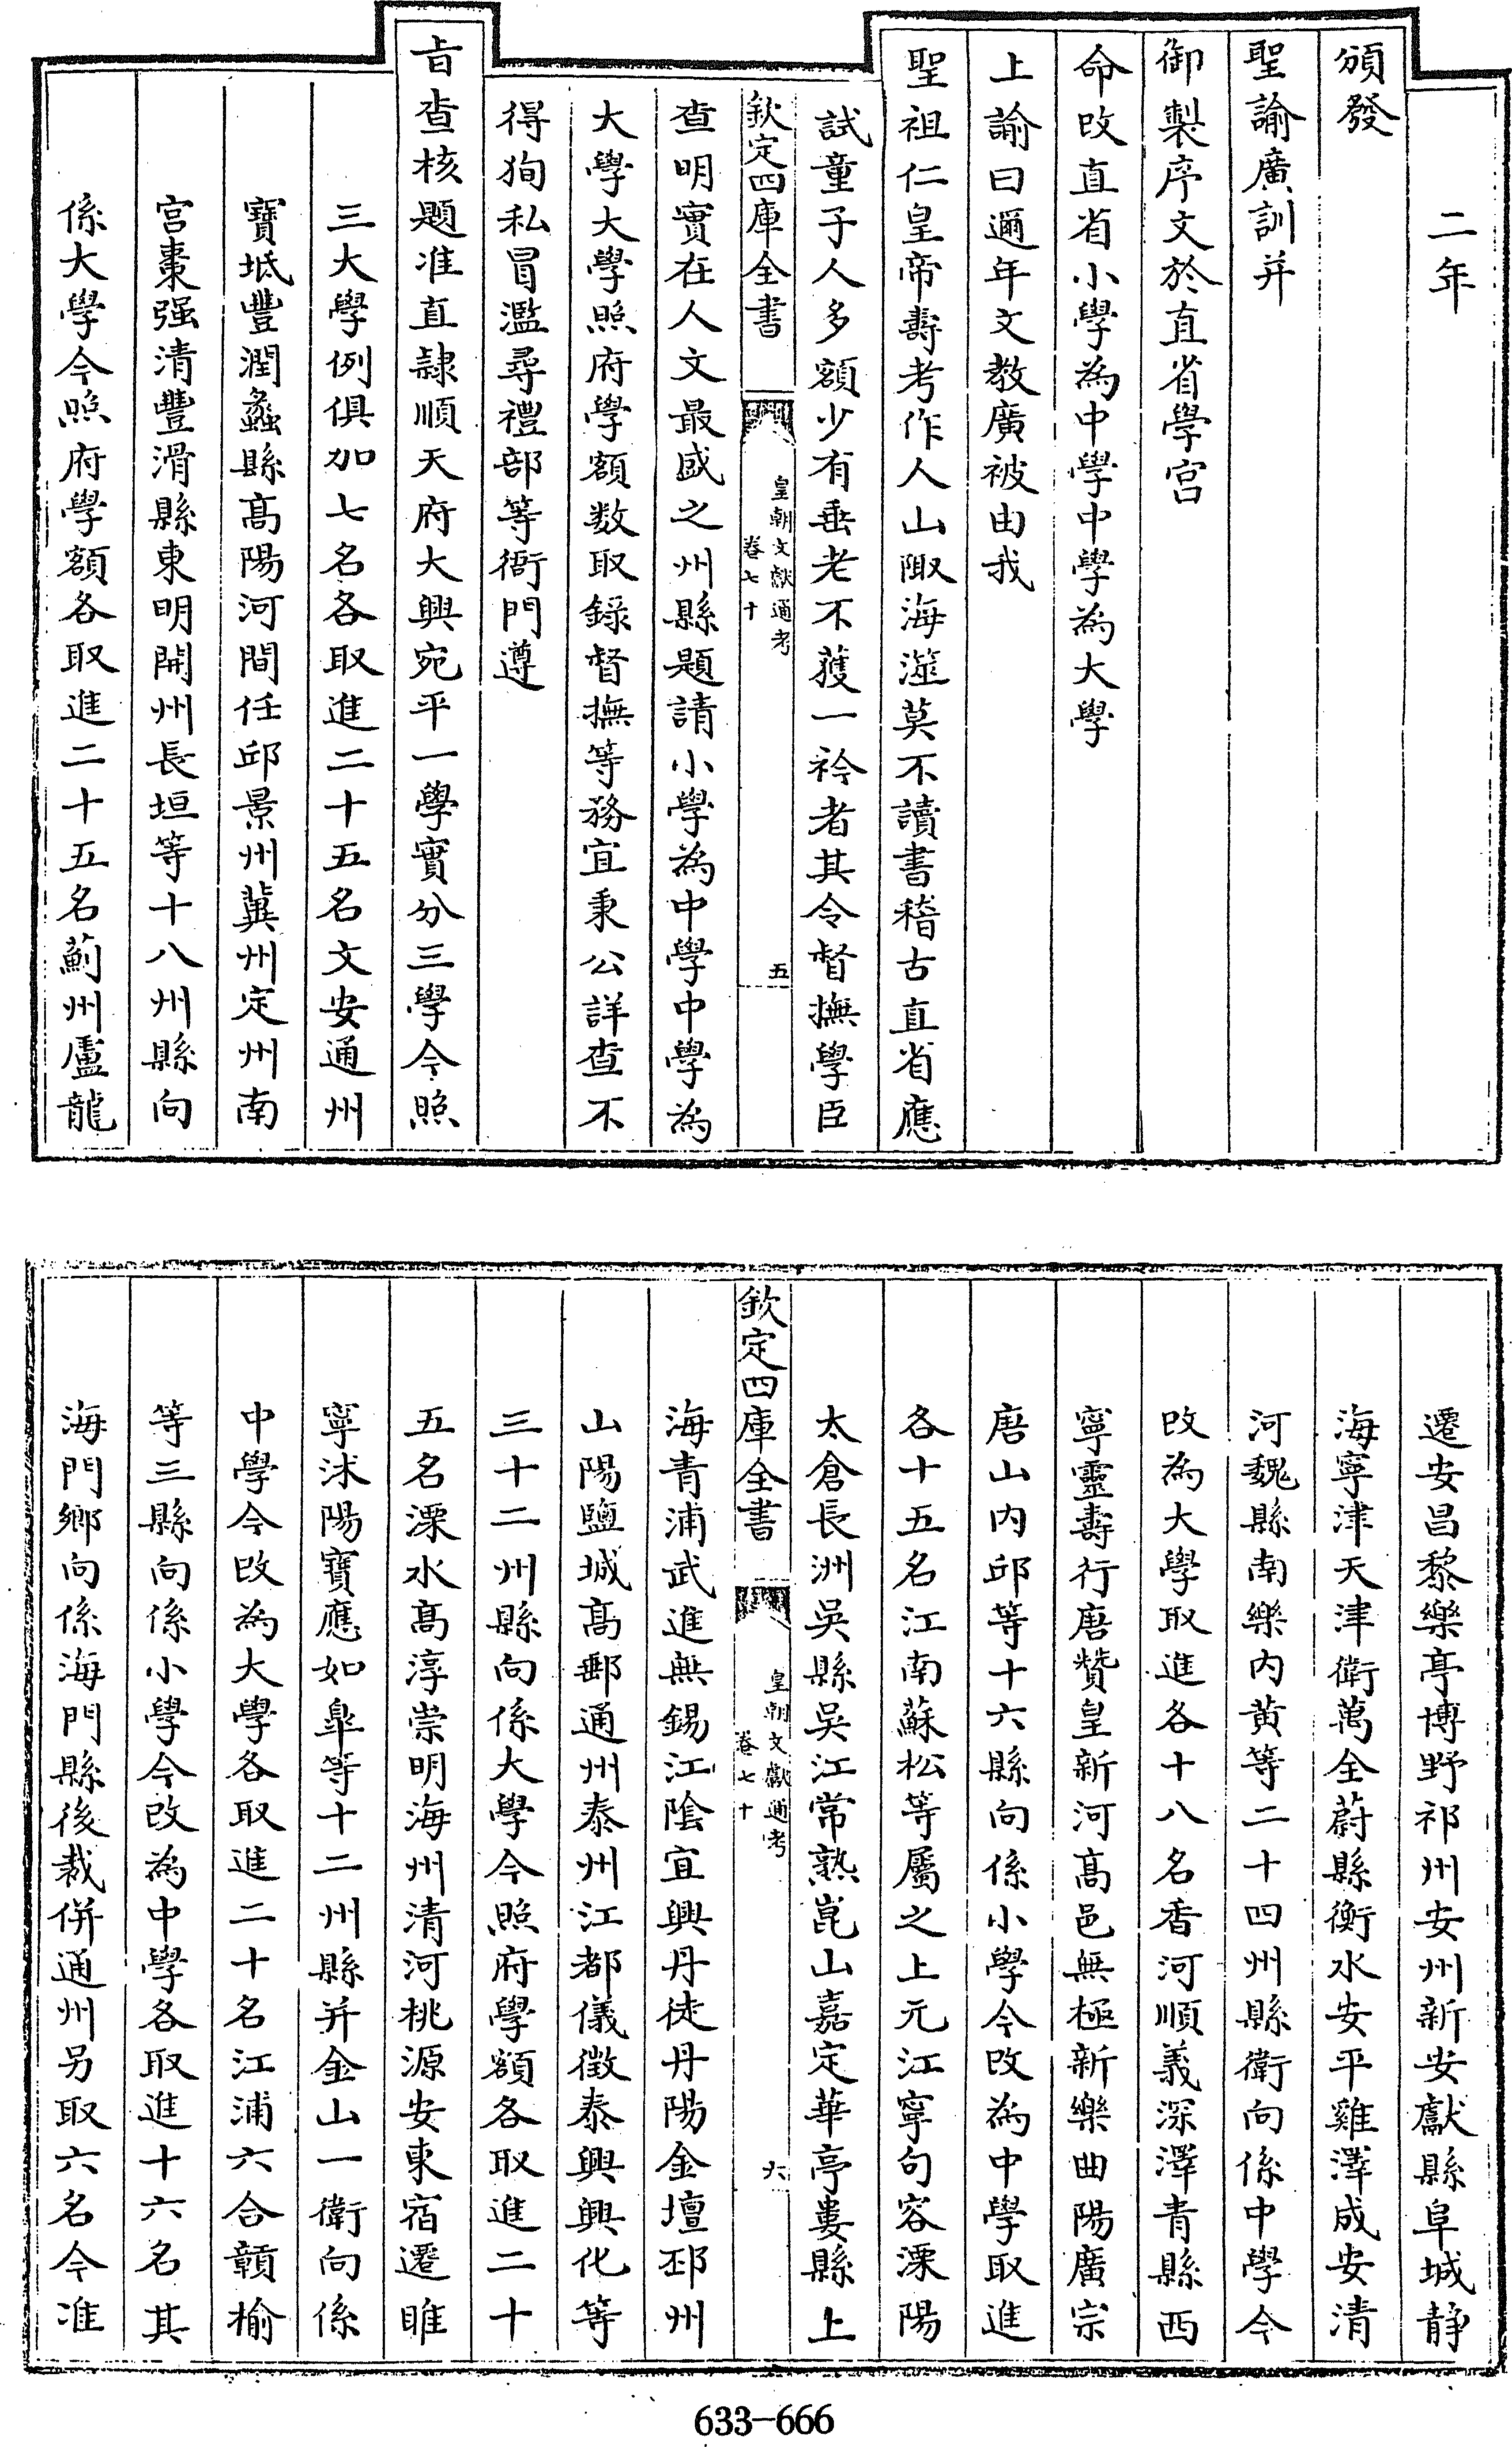 二年
頒發
聖諭廣訓并
御製序文於直省學宮
命改直省小學為中學中學為大學
上諭曰邇年文教廣被由我
聖祖仁皇帝壽考作人山陬海澨莫不讀書稽古直省應
試童子人多額少有垂老不獲一衿者其令督撫學臣
欽定四庫全書
皇朝文獻通考
卷七十
五
查明實在人文最盛之州縣題請小學為中學中學為
大學大學照府學額數取錄督撫等務宜秉公詳查不
得狥私冒濫尋禮部等衙門遵
旨查核題准直隸順天府大興宛平一學實分三學今照
三大學例俱加七名各取進二十五名文安通州
寶坻豐潤蠡縣高陽河間任邱景州冀州定州南
宮棗强清豐滑縣東明開州長垣等十八州縣向
係大學今照府學額各取進二十五名薊州盧龍
遷安昌黎樂亭博野祁州安州新安獻縣阜城靜
海寧津天津衛萬全蔚縣衡水安平雞澤成安清
河魏縣南樂内黃等二十四州縣衛向係中學今
改為大學取進各十八名香河順義深澤青縣西
寧靈壽行唐贊皇新河高邑無極新樂曲陽廣宗
唐山内邱等十六縣向係小學今改為中學取進
各十五名江南蘇松等屬之上元江寧句容溧陽
太倉長洲吳縣吳江常熟崑山嘉定華亭婁縣上
欽定四庫全書
皇朝文獻通考
卷七十
六
海青浦武進無錫江陰宜興丹徒丹陽金壇邳州
山陽鹽城高郵通州泰州江都儀徵泰興興化等
三十二州縣向係大學今照府學額各取進二十
五名溧水高淳崇明海州清河桃源安東宿遷睢
寧沭陽寶應如臯等十二州縣并金山一衛向係
中學今改為大學各取進二十名江浦六合贛榆
等三縣向係小學今改為中學各取進十六名其
海門鄉向係海門縣後裁併通州另取六名今准
633-666